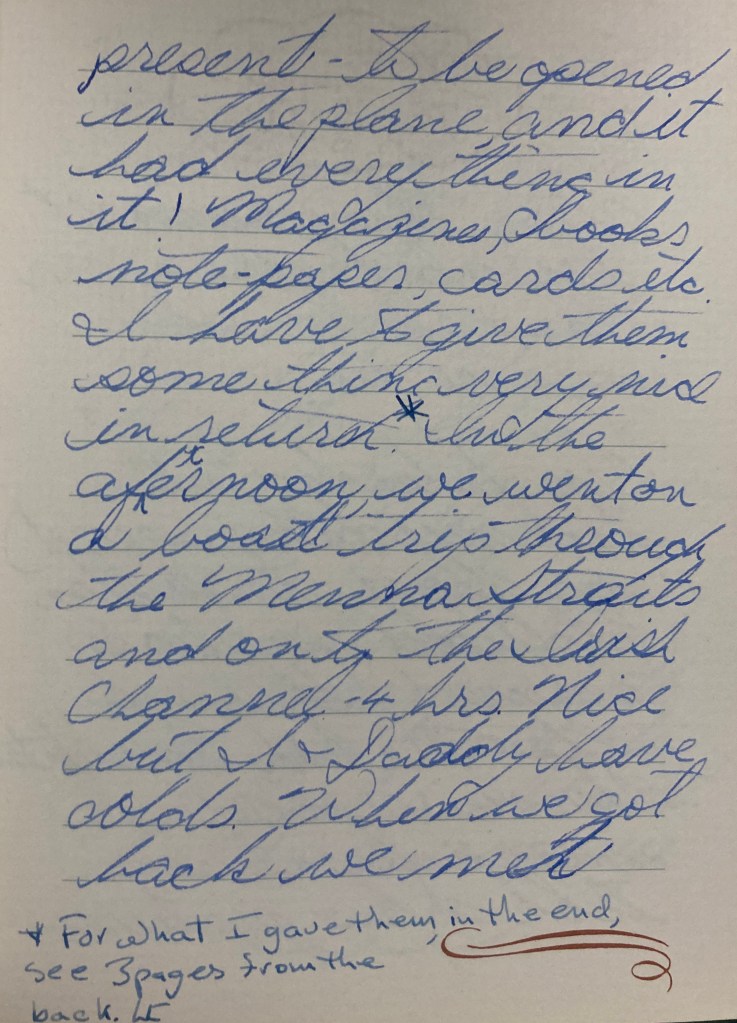 present - to be opened
in the plane, and it
had everything in
it! Magazines, books,
note-paper, cards etc.
I have to give them
some thing very nice
in return.* In the
afternoon, we went on
a boat trip through
the Menna Straits
and onto the Irish
Channel - 4 hrs. Nice
but I & Daddy have
colds. When we got
back we met
* For what I gave them, in the end,
see 3 pages from the
back.